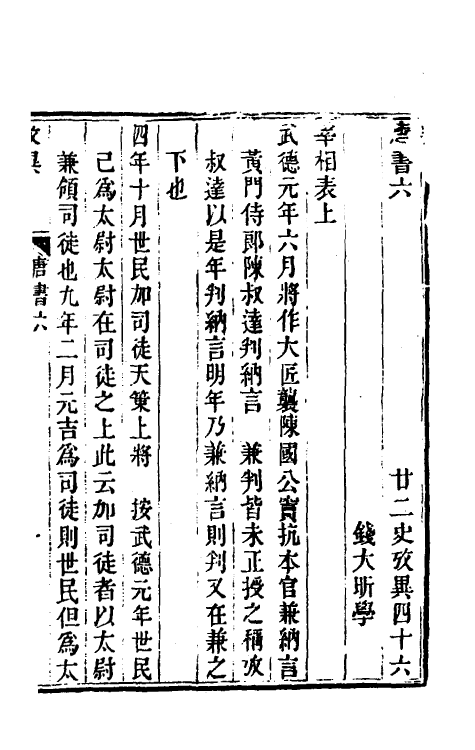 唐書六　廿二史攷異四十六
錢大昕學
宰相表上
武德元年六月將作大匠襲陳國公竇抗本官兼納言
黃門侍郎陳叔達判納言　兼判皆未正授之稱攷
叔達以是年判納言明年乃兼納言則判又在兼之
下也
四年十月世民加司徒天策上將　按武德元年世民
已爲太尉太尉在司徒之上此云加司徒者以太尉
兼領司徒也九年二月元吉爲司徒則世民但爲太
攷異　唐書六